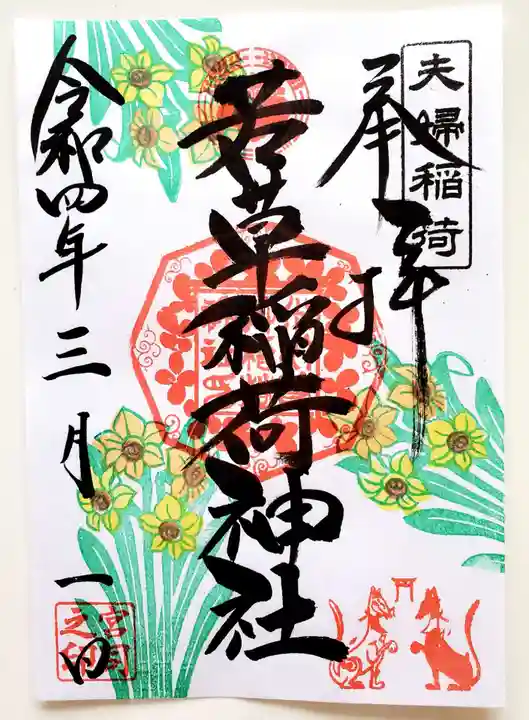 夫婦稲荷
奉拝
若草稲荷神社
令和四年三月一日
宮司之印